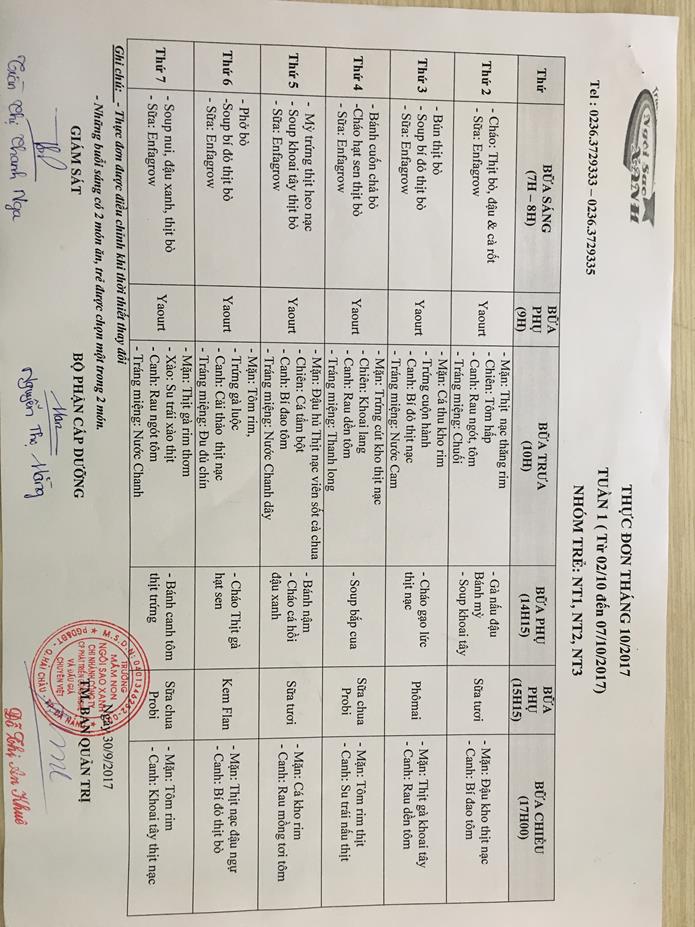 Ngôi Sao
XANH
Tel : 0236.3729333 – 0236.3729335
THỰC ĐƠN THÁNG 10/2017
TUẦN 1 ( Từ 02/10 đến 07/10/2017)
NHÓM TRẺ: NT1, NT2, NT3
Thứ
BỮA SÁNG
(7H – 8H)
BỮA
PHỤ
(9H)
BỮA TRƯA
(10H)
BỮA PHỤ
(14H15)
BỮA
PHỤ
(15H15)
BỮA CHIỀU
(17H00)
Thứ 2
- Cháo: Thịt bò, đậu & cà rốt
- Sữa: Enfagrow
Yaourt
-Mặn: Thịt nạc thăng rim
- Chiên: Tôm hấp
- Canh: Rau ngót, tôm
- Tráng miệng: Chuối
- Gà nấu đậu
Bánh mỳ
- Soup khoai tây
Sữa tươi
- Mặn: Đậu kho thịt nạc
- Canh: Bí đao tôm
Thứ 3
- Bún thịt bò
- Soup bí đỏ thịt bò
- Sữa: Enfagrow
Yaourt
- Mặn: Cá thu kho rim
- Trứng cuộn hành
- Canh: Bí đỏ thịt nạc
- Tráng miệng: Nước Cam
- Cháo gạo lức
thịt nạc
Phômai
- Mặn: Thịt gà khoai tây
- Canh: Rau dền tôm
Thứ 4
- Bánh cuốn chả bò
-Cháo hạt sen thịt bò
- Sữa: Enfagrow
Yaourt
-Mặn: Trứng cút kho thịt nạc
- Chiên: Khoai lang
- Canh: Rau dền tôm
- Tráng miệng: Thanh long
- Soup bắp cua
Sữa chua
Probi
- Mặn: Tôm rim thịt
- Canh: Su trái nấu thịt
Thứ 5
- Mỳ trứng thịt heo nạc
- Soup khoai tây thịt bò
- Sữa: Enfagrow
Yaourt
- Mặn: Đậu hũ Thịt nạc viên sốt cà chua
- Chiên: Cá tẩm bột
- Canh: Bí đao tôm
- Tráng miệng: Nước Chanh dây
- Bánh nậm
- Cháo cá hồi
đậu xanh
Sữa tươi
- Mặn: Cá kho rim
- Canh: Rau mồng tơi tôm
Thứ 6
- Phở bò
-Soup bí đỏ thịt bò
- Sữa: Enfagrow
Yaourt
-Mặn: Tôm rim,
- Trứng gà luộc
- Canh: Cải thảo thịt nạc
- Tráng miệng: Đu đủ chín
- Cháo Thịt gà
hạt sen
Kem Flan
- Mặn: Thịt nạc đậu ngự
- Canh: Bí đỏ thịt bò
Thứ 7
- Soup nui, đậu xanh, thịt bò
- Sữa: Enfagrow
Yaourt
-Mặn: Thịt gà rim thơm
- Xào: Su trái xào thịt
- Canh: Rau ngót tôm
- Tráng miệng: Nước Chanh
- Bánh canh tôm
thịt trứng
Sữa chua
Probi
- Mặn: Tôm rim
- Canh: Khoai tây thịt nạc
Ghi chú: - Thực đơn được điều chỉnh khi thời thiết thay đổi
- Những buổi sáng có 2 món ăn, trẻ được chọn một trong 2 món.
Ngày 30/9/2017
GIÁM SÁT
BỘ PHẬN CẤP DƯỠNG
TM. BAN QUẢN TRỊ
TRƯỜNG
MẦM NON
NGÔI SAO XANH
CHI NHÁNH CÔNG TY
CP PHÁT TRIỂN
VÀ ĐẤU GIÁ
CHUYÊN VIỆT
Q. HẢI CHÂU
Trần Thị Thanh Nga
Nguyễn Thị Hằng
Đỗ Thị An Khuê